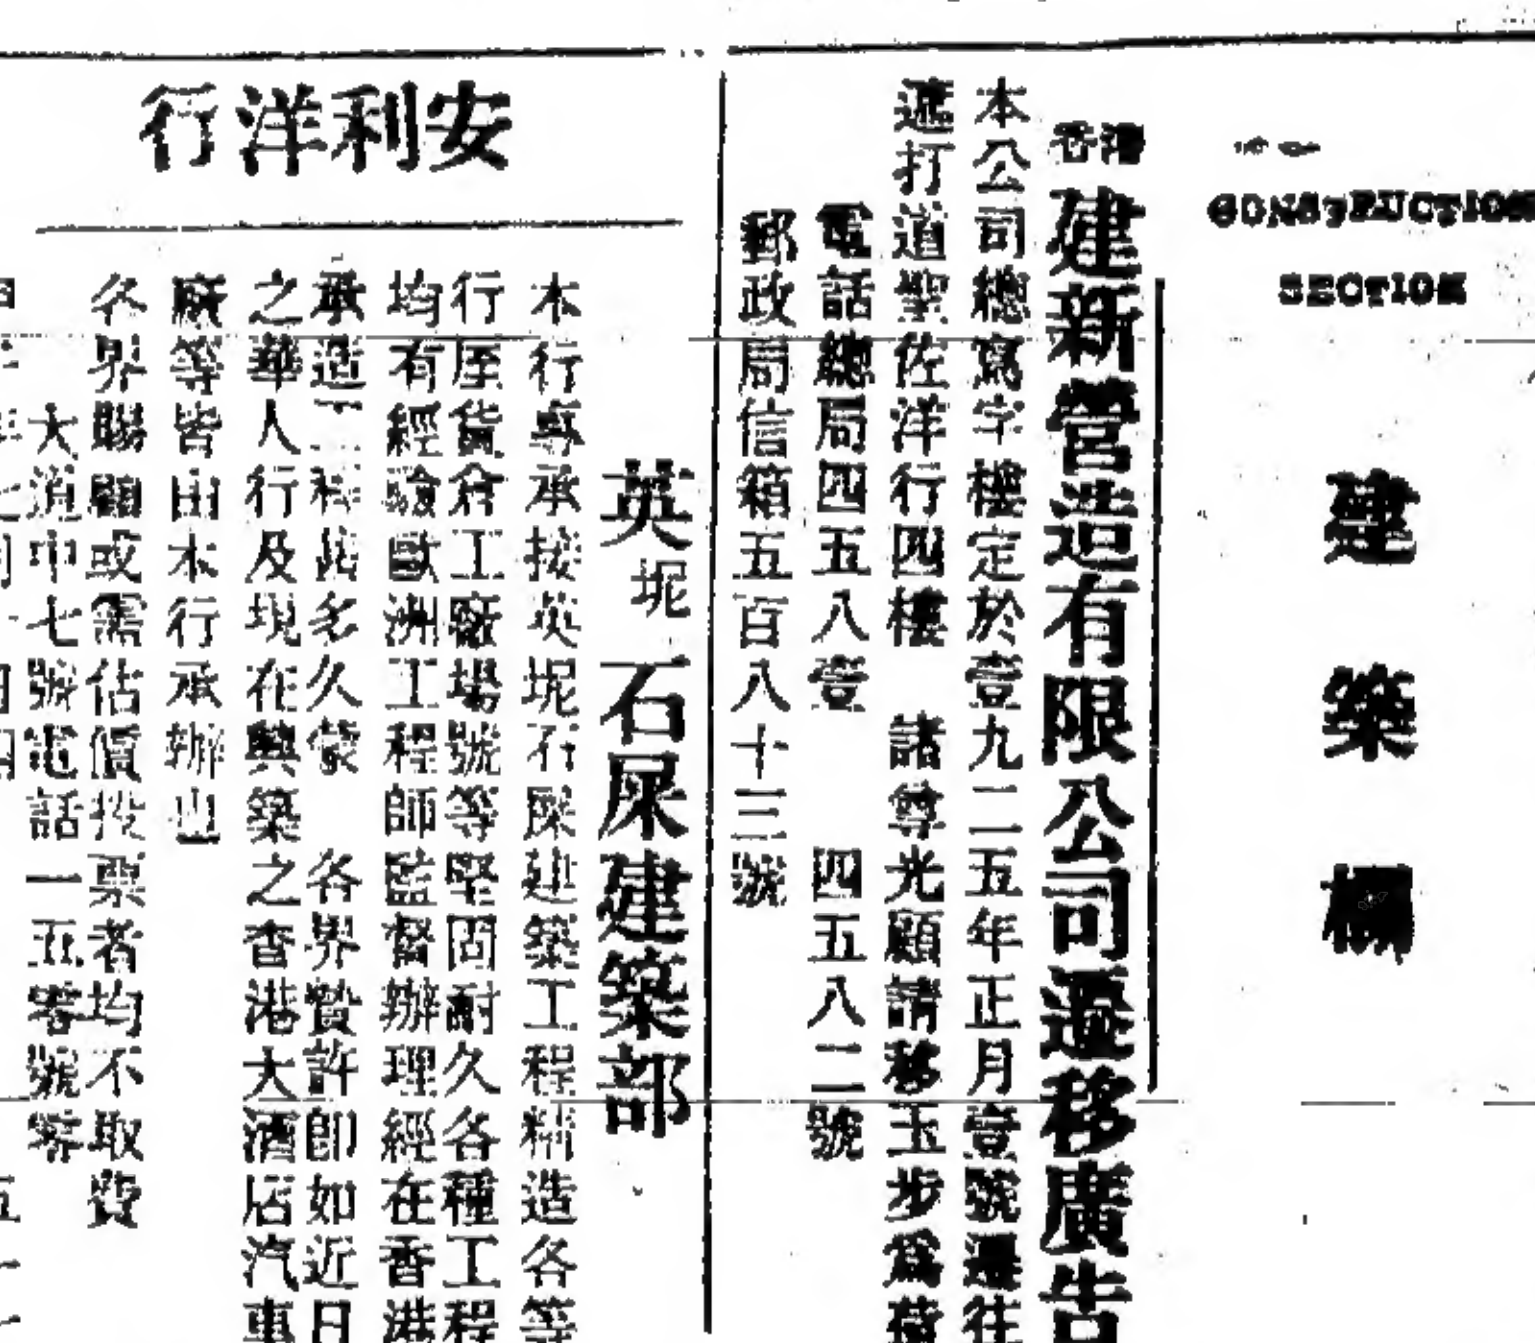 CONSTRUCTION
SECTION
建築欄
香港
建新營造有限公司遷移廣告
本公司總寫字樓定於壹九二五年正月壹號遷往
遮打道聖佐洋行四樓 諸尊光顧請移玉步爲荷
電話總局四五八壹 四五八二號
郵政局信箱五百八十三號
安利洋行
英坭石屎建築部
本行專承接英坭石屎建築工程精造各等
行屋貨倉工廠場號等堅固耐久各種工程
均有經驗歐洲工程師監督辦理經在香港
承造工程甚多久蒙 各界贊許即如近日
之華人行及現在興築之香港大酒店汽車
廠等皆由本行承辦也
各界賜顧或需估價投票者均不取費
大道中七號電話一五零號零